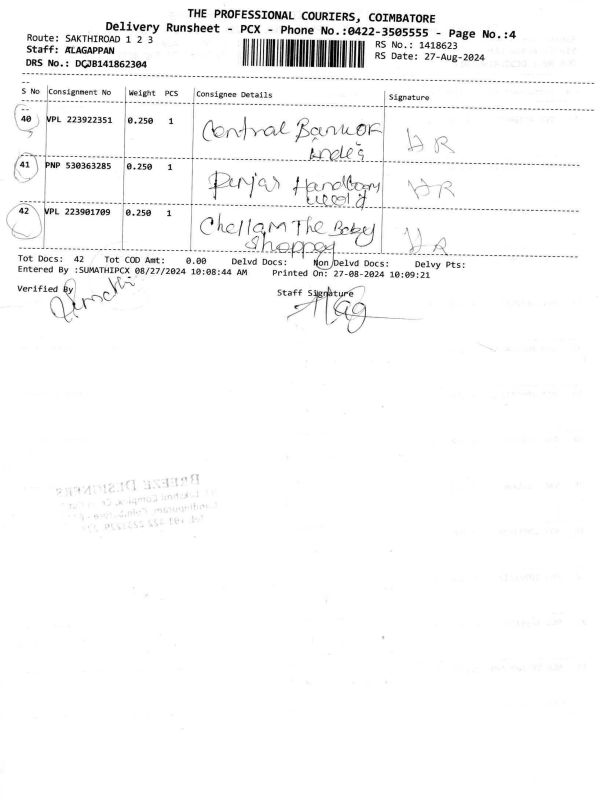 THE PROFESSIONAL COURIERS, COIMBATORE
Delivery Runsheet - PCX - Phone No.:0422-3505555 - Page No.:4
Route: SAKTHIROAD 1 2 3
RS No.: 1418623
Staff: ALAGAPPAN
RS Date: 27-Aug-2024
DRS No.: DCJB141862304
S No Consignment No Weight PCS Consignee Details Signature
40 VPL 223922351 0.250 1 Central Bank OF
HR
41 PNP 530363285 0.250 1
HR
42 VPL 223901709 0.250 1 Chellam The Baby
Shoppey HR
Tot Docs: 42 Tot COD Amt: 0.00 Delvd Docs: Non Delvd Docs: Delvy Pts:
Entered By :SUMATHIPCX 08/27/2024 10:08:44 AM Printed On: 27-08-2024 10:09:21
Verified By
Staff Signature
BREEZE DESIGNERS